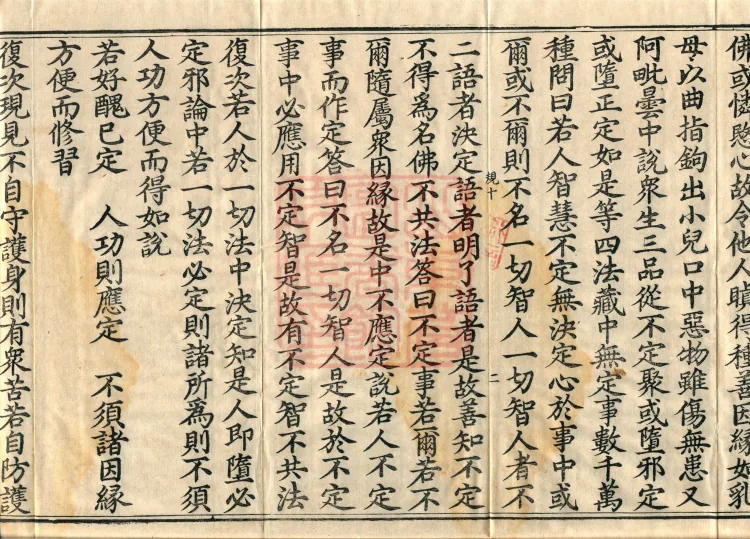 佛或憐愍心故令他人瞋得種善因緣如乳
母以曲指鉤出小兒口中惡物雖傷無患又
阿毗曇中說衆生三品從不定聚或墮邪定
或墮正定如是等四法藏中無定事數千萬
種問曰若人智慧不定無決定心於事中或
爾或不爾則不名一切智人一切智人者不
規十
二
二語者決定語者明了語者是故善知不定
不得爲名佛不共法答曰不定事若爾若不
爾隨屬衆因緣故是中不應定說若人不定
事而作定答曰不名一切智人是故於不定
事中必應用不定智是故有不定智不共法
復次若人於一切法中決定知是人即墮必
定邪論中若一切法必定則諸所爲則不須
人功方便而得如說
若好醜已定 人功則應定 不須諸因緣
方便而修習
復次現見不自守護身則有衆苦若自防護